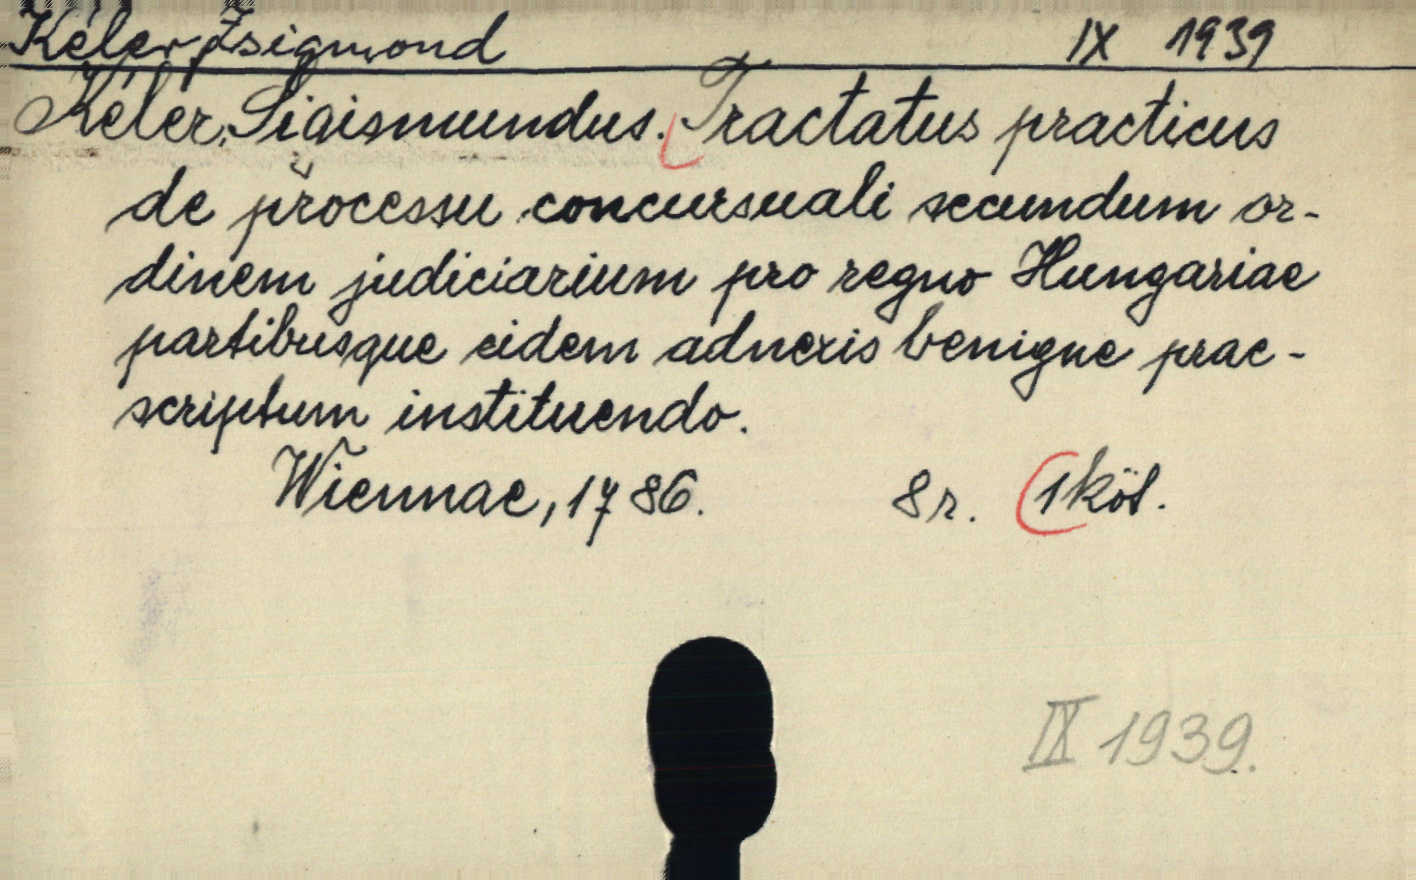 Kéler, Zsigmond IX 1939
Kéler, Sigismundus. Tractatus practicus
de processu concursuali secundum or-
dinem judiciarium pro regno Hungariae
partibusque eidem adnexis benigne prae-
scriptum instituendo.
Wiennae, 1786. 8r. 1 köt.
IX 1939.